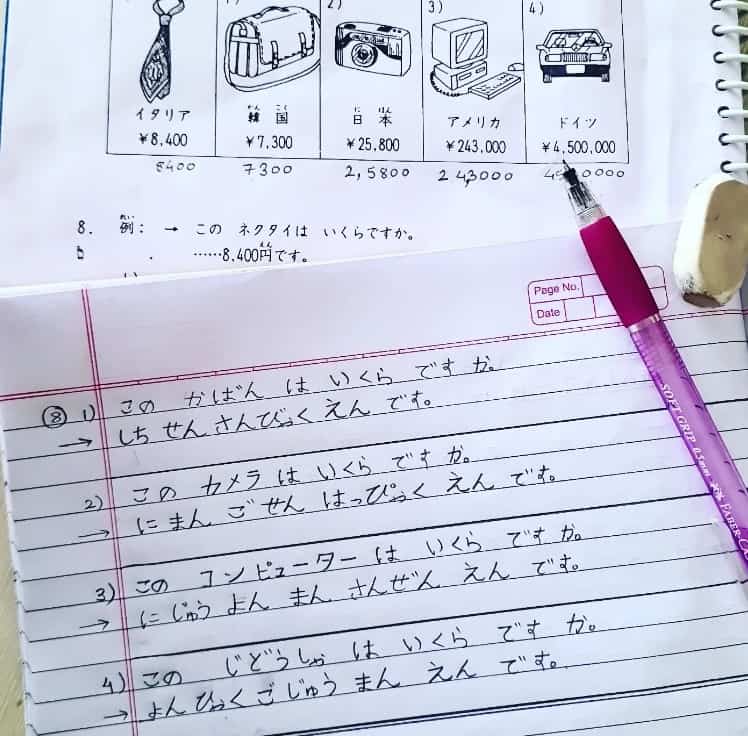 1) 2) 3) 4)
イタリア 韓国 日本 アメリカ ドイツ
¥8,400 ¥7,300 ¥25,800 ¥243,000 ¥4,500,000
8400 7300 2,5800 243000
8. 例: → この ネクタイは いくらですか。
……8,400円です。
Page No.
Date
⑧ 1) この かばん は いくら です か。
→ しち せん さんびゃく えん です。
2) この カメラ は いくら です か。
→ に まん ご せん はっぴゃく えん です。
3) この コンピューター は いくら です か。
→ に じゅう よん まん さんぜん えん です。
4) この じどうしゃ は いくら です か。
→ よん ひゃく ご じゅう まん えん です。
SOFT GRIP 0.5mm FABER-CA